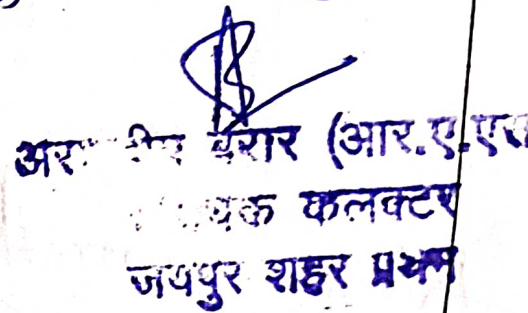 बरार (आर.ए.एस
कलक्टर
जयपुर शहर प्रथम